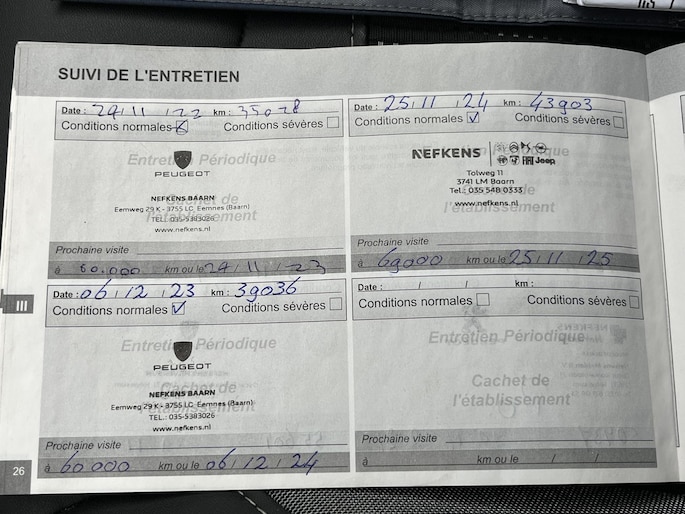 SUIVI DE L'ENTRETIEN
Date : 29/11/22 km : 35078
Conditions normales Conditions sévères
Entretien Périodique
PEUGEOT
Cachet de
NEFKENS BAARN
l'établissement
Eemweg 29 K - 3755 LC Eemnes (Baarn)
TEL.: 035-5383026
www.nefkens.nl
Prochaine visite
à 60.000 km ou le 29/11/23
Date : 25/11/24 km : 43903
Conditions normales Conditions sévères
Entretien Périodique
NEFKENS
FIAT Jeep
Tolweg 11
3741 LM Baarn
Tel.: 035 548 0333
Cachet de
www.nefkens.nl
l'établissement
Prochaine visite
à 69000 km ou le 25/11/25
III
Date : 06/12/23 km : 39036
Conditions normales Conditions sévères
Entretien Périodique
PEUGEOT
Cachet de
NEFKENS BAARN
Eemweg 29 K - 3755 LC Eemnes (Baarn)
l'établissement
TEL.: 035-5383026
www.nefkens.nl
Prochaine visite
à 60000 km ou le 06/12/24
Date : / / km :
Conditions normales Conditions sévères
Entretien Périodique
Cachet de
l'établissement
Prochaine visite
à km ou le / /
26